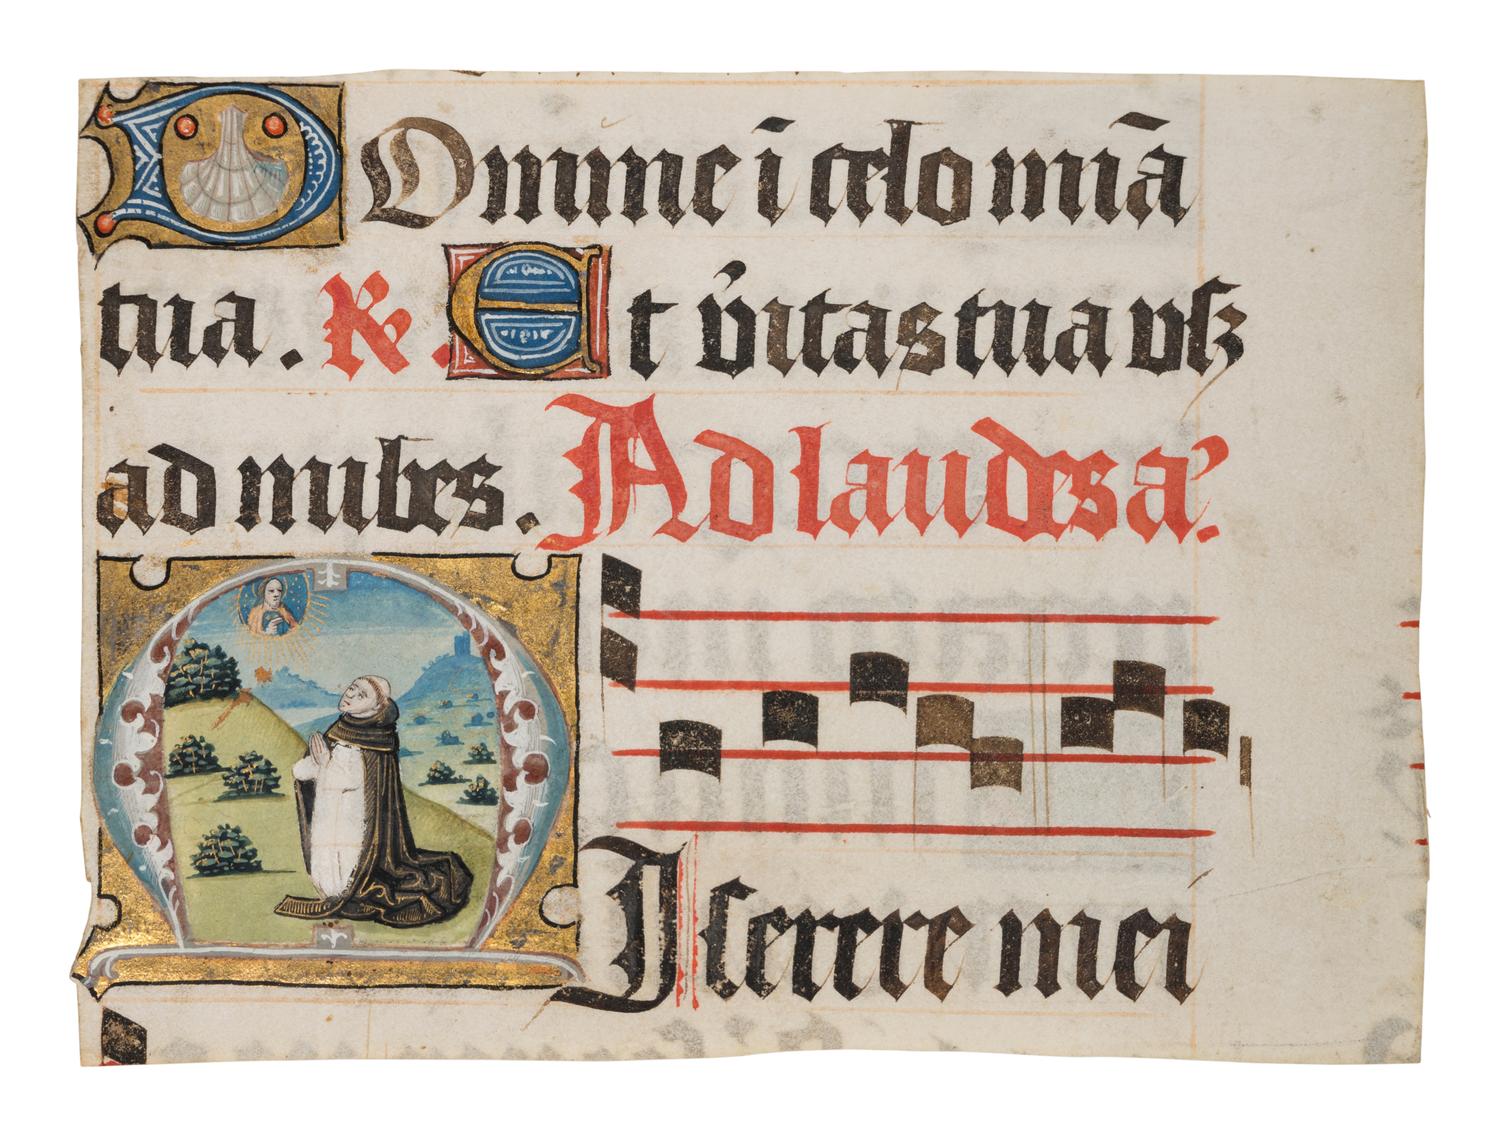 DOmine ī celo mīa
tua. ℟. Et v̄itas tua vsqꝫ
ad nubes. Ad laudes añ.
MIserere mei